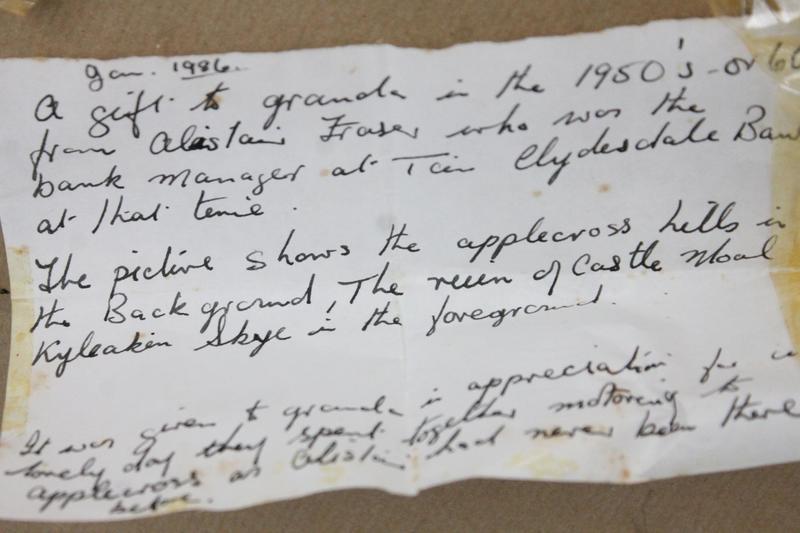 Jan. 1986.
A gift to granda in the 1950's - or 60
from Alistair Fraser who was the
bank manager at Tain Clydesdale Ban
at that time.
The picture shows the applecross hills in
the Background, The ruin of Castle Moal
Kyleakin Skye in the foreground.
It was given to granda in appreciation for a
lovely day they spent together motoring to
applecross as Alistair had never been there
before.